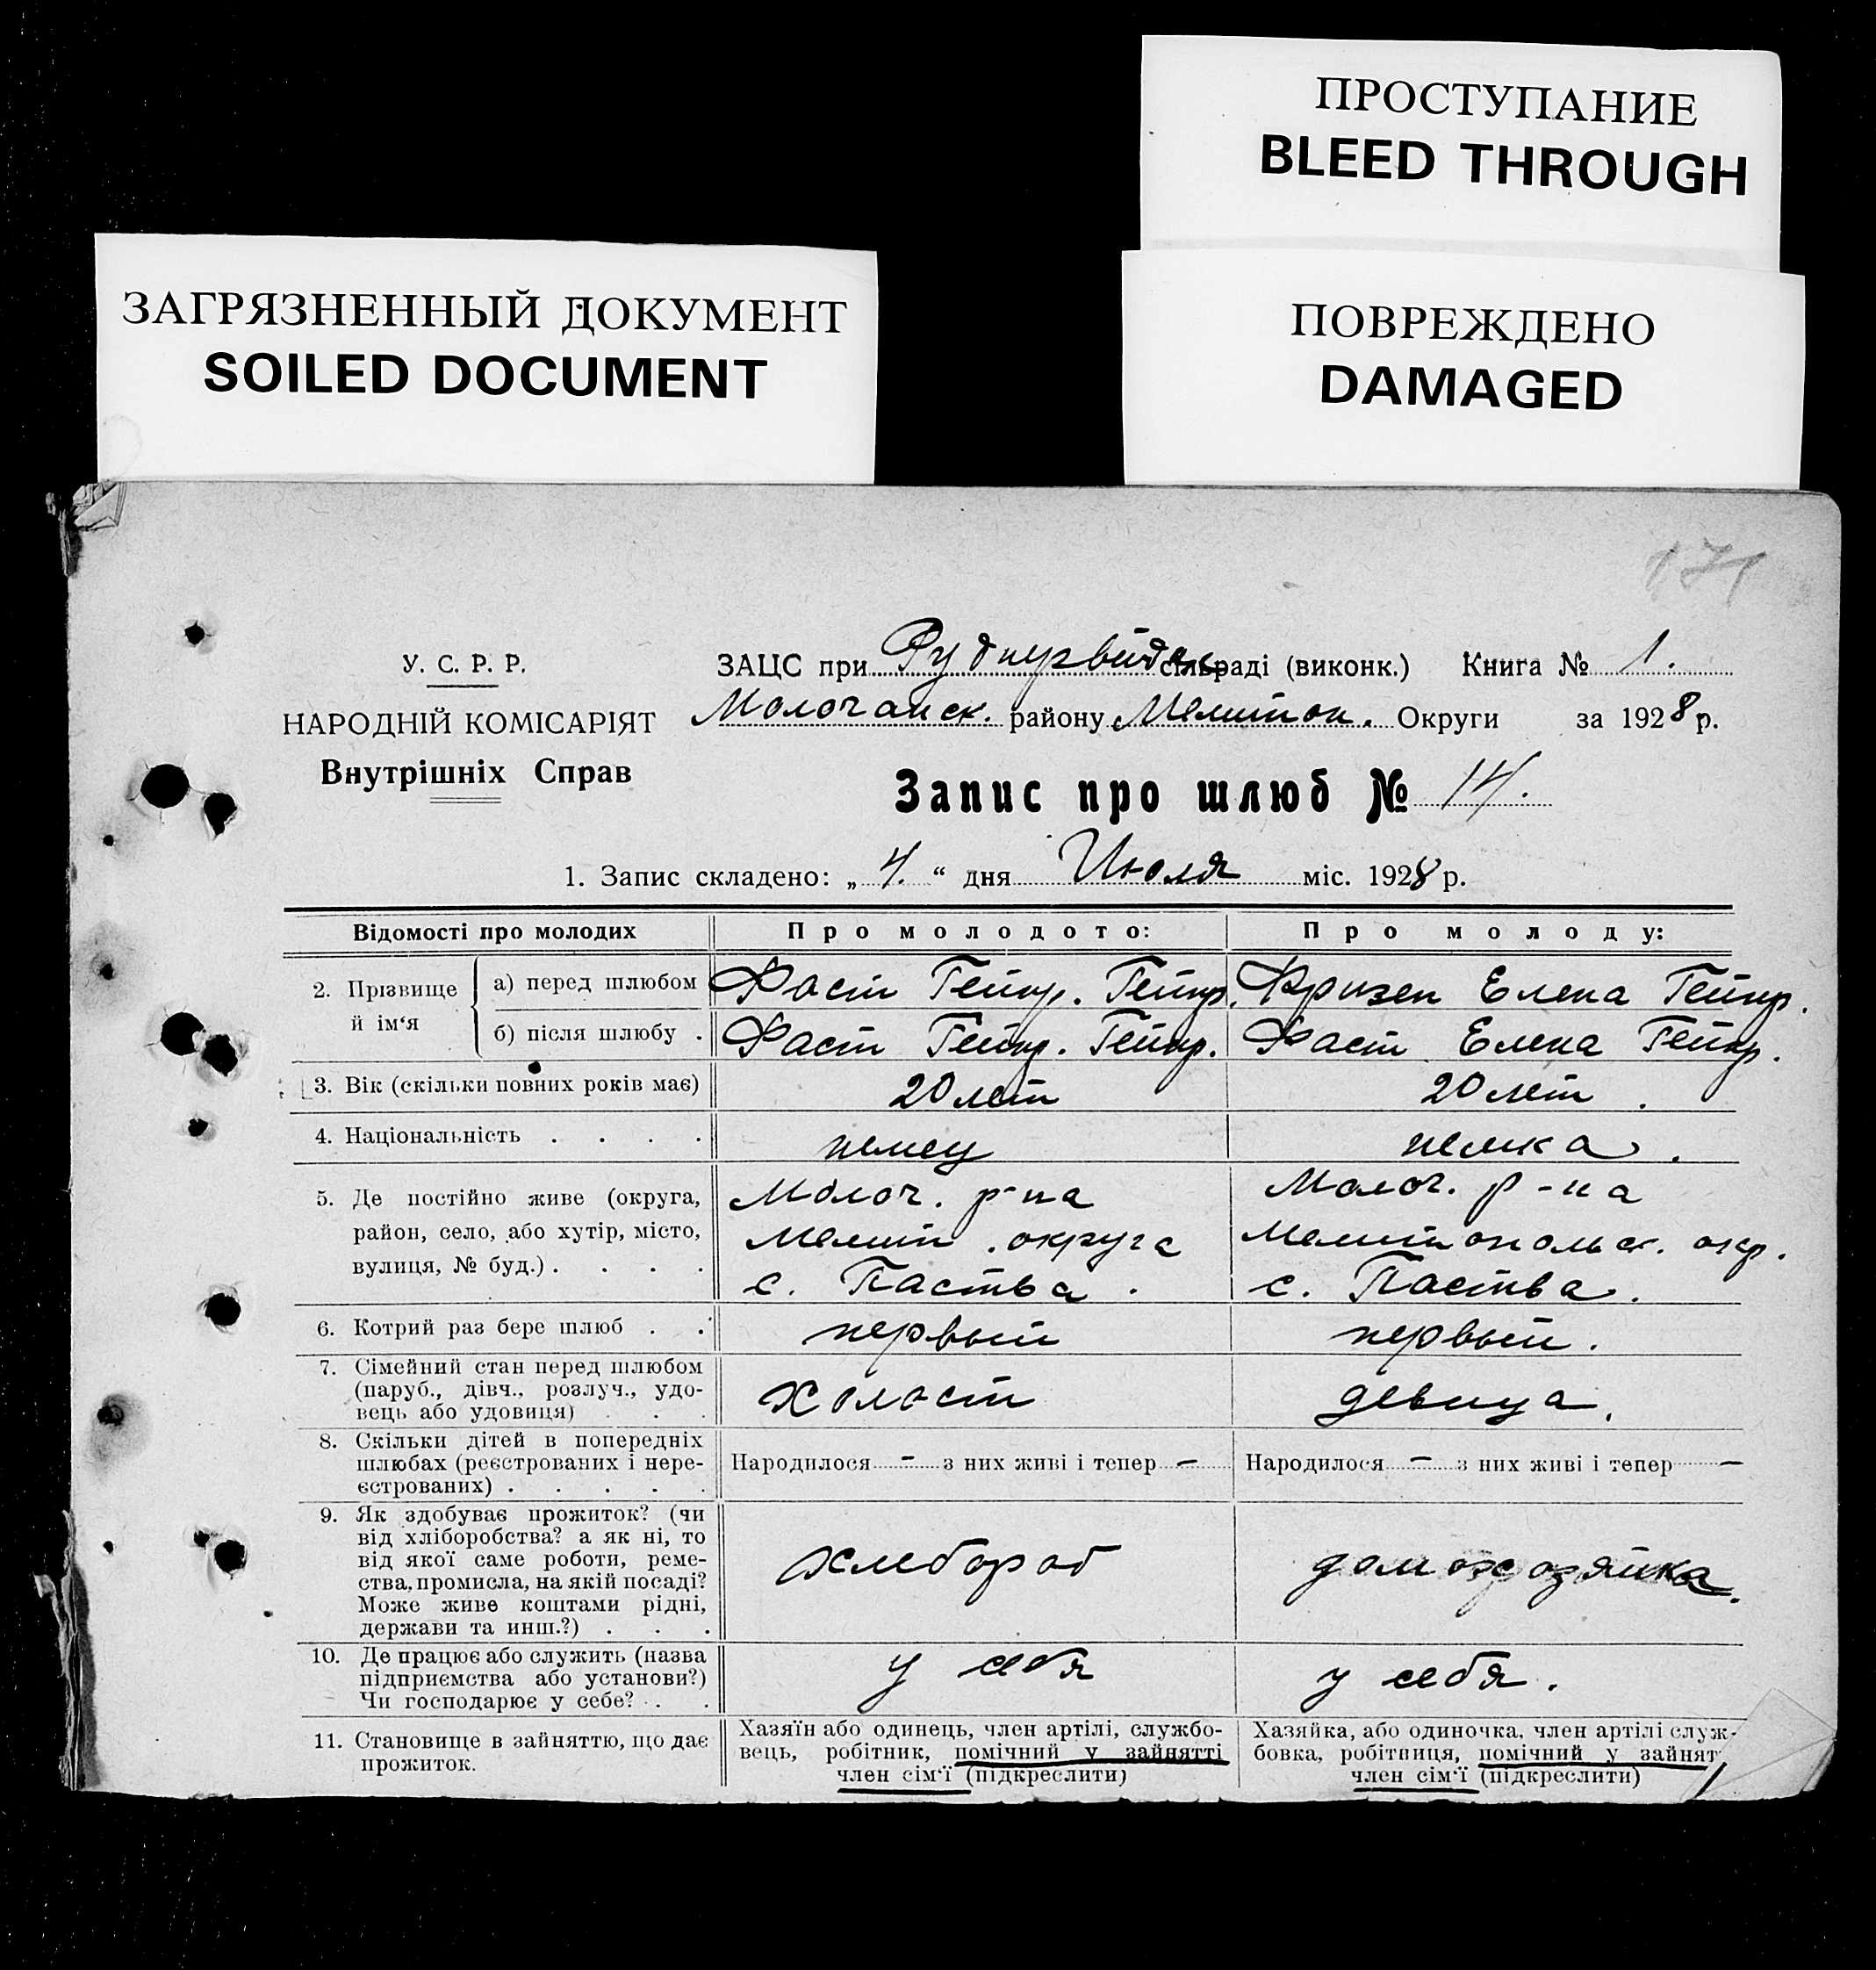 ПРОСТУПАНИЕ
BLEED THROUGH
ЗАГРЯЗНЕННЫЙ ДОКУМЕНТ
SOILED DOCUMENT
ПОВРЕЖДЕНО
DAMAGED
171
У. С. Р. Р.
НАРОДНІЙ КОМІСАРІЯТ
Внутрішніх Справ
ЗАЦС при Руднервейден сільраді (виконк.) Книга № 1.
Молочанск. району Мелитоп. Округи за 1928 р.
Запис про шлюб № 14.
1. Запис складено: „ 4. “ дня Июля міс. 1928 р.
Відомості про молодих
Про молодого:
Про молоду:
2. Прізвище й ім‘я
а) перед шлюбом
Фаст Гейнр. Гейнр.
Фризен Елена Гейнр.
б) після шлюбу .
Фаст Гейнр. Гейнр.
Фаст Елена Гейнр.
3. Вік (скільки повних років має)
20 лет
20 лет .
4. Національність . . . .
немец
немка .
5. Де постійно живе (округа,
район, село, або хутір, місто,
вулиця, № буд.) . . . .
Молоч. р-на
Мелит. округа
с. Паства .
Молоч. р-на
Мелитопольск. окр.
с. Паства .
6. Котрий раз бере шлюб . .
первый
первый .
7. Сімейний стан перед шлюбом
(паруб., дівч., розлуч., удо-
вець або удовиця) . . .
холост
девица .
8. Скільки дітей в попередніх
шлюбах (реєстрованих і нере-
єстрованих) . . . . .
Народилося – з них живі і тепер –
Народилося – з них живі і тепер –
9. Як здобуває прожиток? (чи
від хліборобства? а як ні, то
від якої саме роботи, реме-
ства, промисла, на якій посаді?
Може живе коштами рідні,
держави та инш.?) . . .
хлебороб
домохозяйка .
10. Де працює або служить (назва
підприємства або установи?)
Чи господарює у себе? . .
у себя
у себя .
11. Становище в зайняттю, що дає
прожиток.
Хазяїн або одинець, член артілі, службо-
вець, робітник, помічний у зайнятті
член сім‘ї (підкреслити)
Хазяйка, або одиночка, член артілі служ-
бовка, робітниця, помічний у зайнят
член сім‘ї (підкреслити)